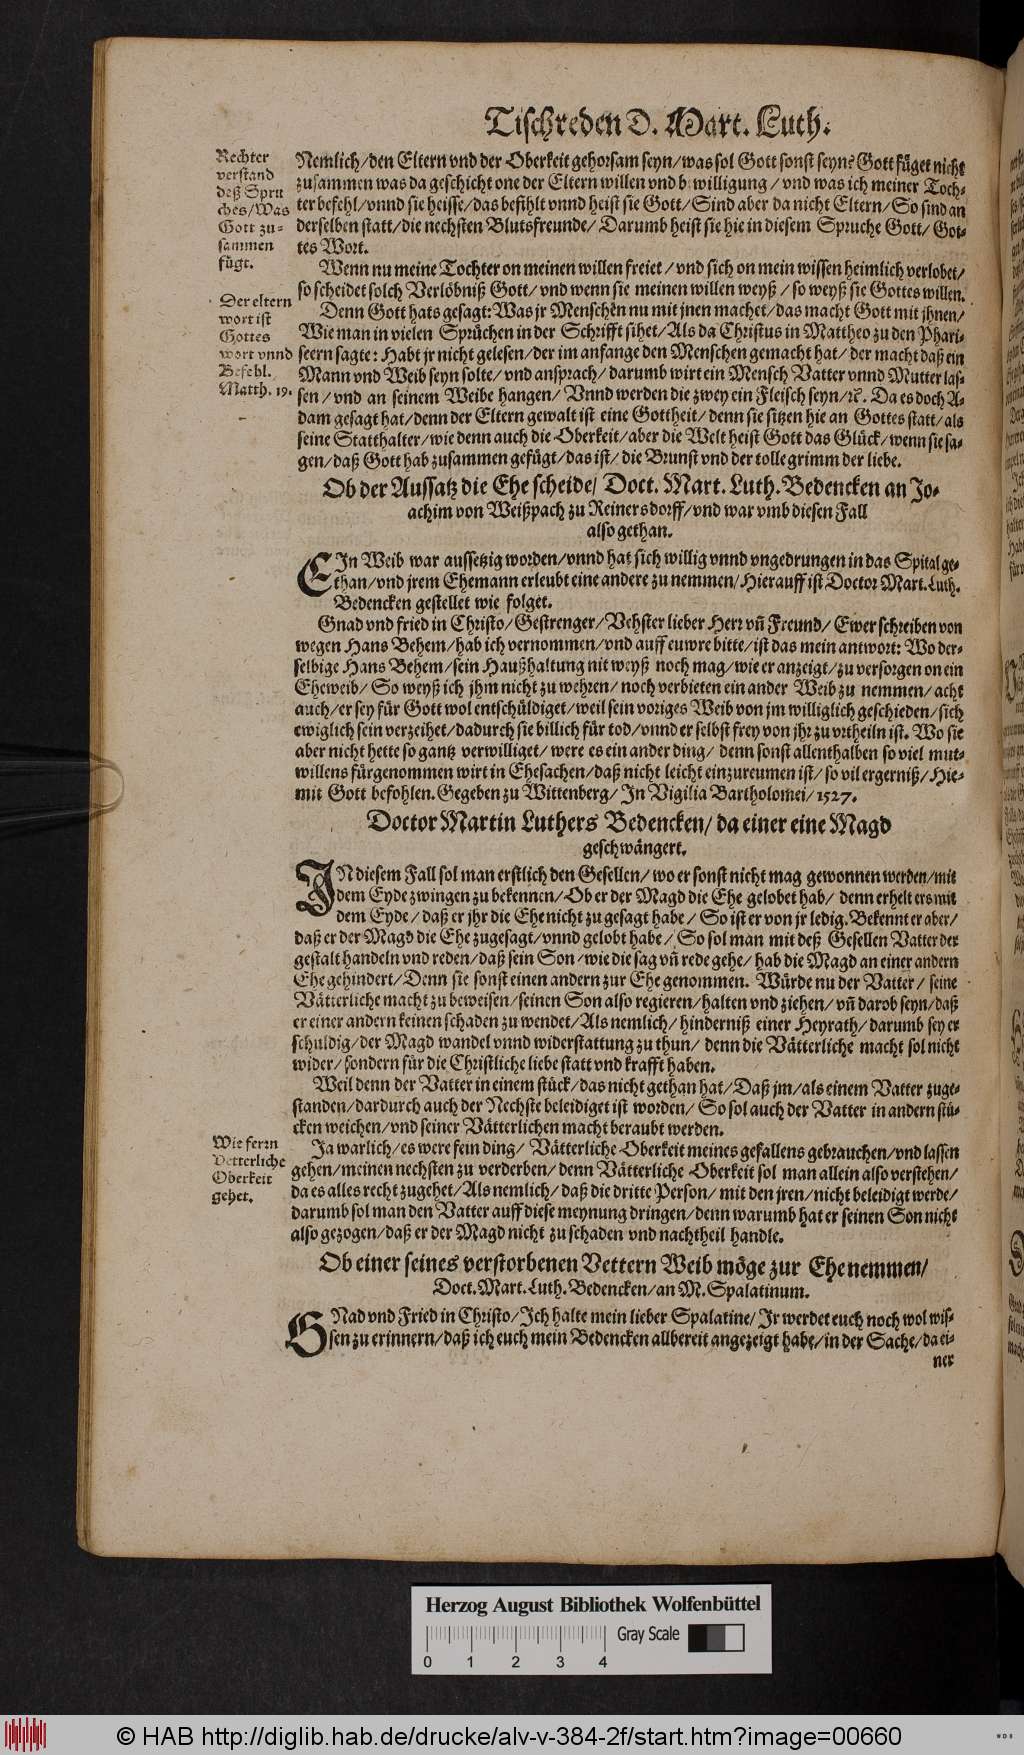 Tischreden D. Mart. Luth.
Rechter
verstand
deß Spru
ches/Was
Gott zu-
sammen
fügt.
Nemlich/den Eltern vnd der Oberkeit gehorsam seyn/was sol Gott sonst seyn? Gott füget nicht
zusammen was da geschicht one der Eltern willen vnd bewilligung/vnd was ich meiner Toch-
ter befehl/vnnd sie heisse/das befihlt vnnd heist sie Gott/Sind aber da nicht Eltern/So sind an
derselben statt/die nechsten Blutsfreunde/Darumb heist sie hie in diesem Spruche Gott/Got-
tes Wort.
Wenn nu meine Tochter on meinen willen freiet/vnd sich on mein wissen heimlich verlobet/
so scheidet solch Verlöbniß Gott/vnd wenn sie meinen willen weyß/so weyß sie Gottes willen.
Der eltern
wort ist
Gottes
wort vnnd
Befehl.
Matth. 19.
Denn Gott hats gesagt: Was jr Menschen nu mit jnen machet/das macht Gott mit jhnen/
Wie man in vielen Sprüchen in der Schrifft sihet/Als da Christus in Mattheo zu den Phari-
seern sagte: Habt jr nicht gelesen/der im anfange den Menschen gemacht hat/der macht daß ein
Mann vnd Weib seyn solte/vnd ansprach/darumb wirt ein Mensch Vatter vnnd Mutter las-
sen/vnd an seinem Weibe hangen/Vnnd werden die zwey ein Fleisch seyn/ꝛc. Da es doch A-
dam gesagt hat/denn der Eltern gewalt ist eine Gottheit/denn sie sitzen hie an Gottes statt/als
seine Statthalter/wie denn auch die Oberkeit/aber die Welt heist Gott das Glück/wenn sie sa-
gen/daß Gott hab zusammen gefügt/das ist/die Brunst vnd der tolle grimm der liebe.
Ob der Aussatz die Ehe scheide/Doct. Mart. Luth. Bedencken an Jo-
achim von Weißpach zu Reinersdorff/vnd war vmb diesen Fall
also gethan.
EIn Weib war aussetzig worden/vnnd hat sich willig vnnd vngedrungen in das Spital ge-
than/vnd jrem Ehemann erleubt eine andere zu nemmen/Hierauff ist Doctor Mart. Luth.
Bedencken gestellet wie folget.
Gnad vnd fried in Christo/Gestrenger/Vehster lieber Herr vñ Freund/Ewer schreiben von
wegen Hans Behem/hab ich vernommen/vnd auff euwre bitte/ist das mein antwort: Wo der-
selbige Hans Behem/sein Haußhaltung nit weyß noch mag/wie er anzeigt/zu versorgen on ein
Eheweib/So weyß ich jhm nicht zu wehren/noch verbieten ein ander Weib zu nemmen/acht
auch/er sey für Gott wol entschüldiget/weil sein voriges Weib von jm williglich geschieden/sich
ewiglich sein verzeihet/dadurch sie billich für tod/vnnd er selbst frey von jhr zu vrtheiln ist. Wo sie
aber nicht hette so gantz verwilliget/were es ein ander ding/denn sonst allenthalben so viel mut-
willens fürgenommen wirt in Ehesachen/daß nicht leicht einzureumen ist/so vil ergerniß/Hie-
mit Gott befohlen. Gegeben zu Wittenberg/In Vigilia Bartholomei/1527.
Doctor Martin Luthers Bedencken/da einer eine Magd
geschwängert.
IN diesem Fall sol man erstlich den Gesellen/wo er sonst nicht mag gewonnen werden/mit
dem Eyde zwingen zu bekennen/Ob er der Magd die Ehe gelobet hab/denn erhelt ers mit
dem Eyde/daß er jhr die Ehe nicht zu gesagt habe/So ist er von jr ledig. Bekennt er aber/
daß er der Magd die Ehe zugesagt/vnnd gelobt habe/So sol man mit deß Gesellen Vatter der
gestalt handeln vnd reden/daß sein Son/wie die sag vñ rede gehe/hab die Magd an einer andern
Ehe gehindert/Denn sie sonst einen andern zur Ehe genommen. Würde nu der Vatter/seine
Vätterliche macht zu beweisen/seinen Son also regieren/halten vnd ziehen/vñ darob seyn/daß
er einer andern keinen schaden zu wendet/Als nemlich/hinderniß einer Heyrath/darumb sey er
schuldig/der Magd wandel vnnd widerstattung zu thun/denn die Vätterliche macht sol nicht
wider/sondern für die Christliche liebe statt vnd krafft haben.
Weil denn der Vatter in einem stück/das nicht gethan hat/Daß jm/als einem Vatter zuge-
standen/dardurch auch der Nechste beleidiget ist worden/So sol auch der Vatter in andern stü-
cken weichen/vnd seiner Vätterlichen macht beraubt werden.
Wie ferrn
Vetterliche
Oberkeit
gehet.
Ja warlich/es were fein ding/Vätterliche Oberkeit meines gefallens gebrauchen/vnd lassen
gehen/meinen nechsten zu verderben/denn Vätterliche Oberkeit sol man allein also verstehen/
da es alles recht zugehet/Als nemlich/daß die dritte Person/mit den jren/nicht beleidigt werde/
darumb sol man den Vatter auff diese meynung dringen/denn warumb hat er seinen Son nicht
also gezogen/daß er der Magd nicht zu schaden vnd nachtheil handle.
Ob einer seines verstorbenen Vettern Weib möge zur Ehe nemmen/
Doct. Mart. Luth. Bedencken/an M. Spalatinum.
GNad vnd Fried in Christo/Ich halte mein lieber Spalatine/Jr werdet euch noch wol wis-
sen zu erinnern/daß ich euch mein Bedencken allbereit angezeigt habe/in der Sache/da ei-
ner
Herzog August Bibliothek Wolfenbüttel
Gray Scale
0 1 2 3 4
© HAB http://diglib.hab.de/drucke/alv-v-384-2f/start.htm?image=00660